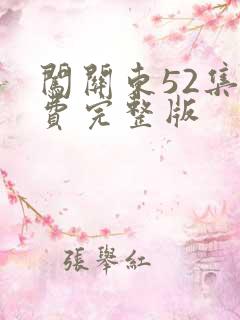 闖關东52集
費完整版
張舉紅